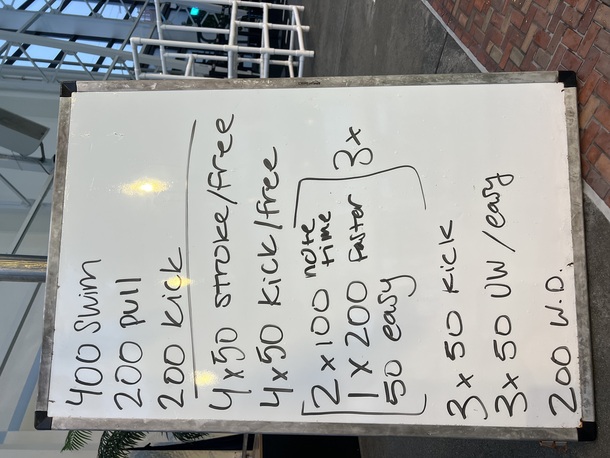 400 Swim
200 pull
200 kick
4x50 stroke/free
4x50 kick/free
[2 x 100 note time
1 x 200 faster
50 easy] 3x
3x 50 kick
3x 50 UW/easy
200 W.D.